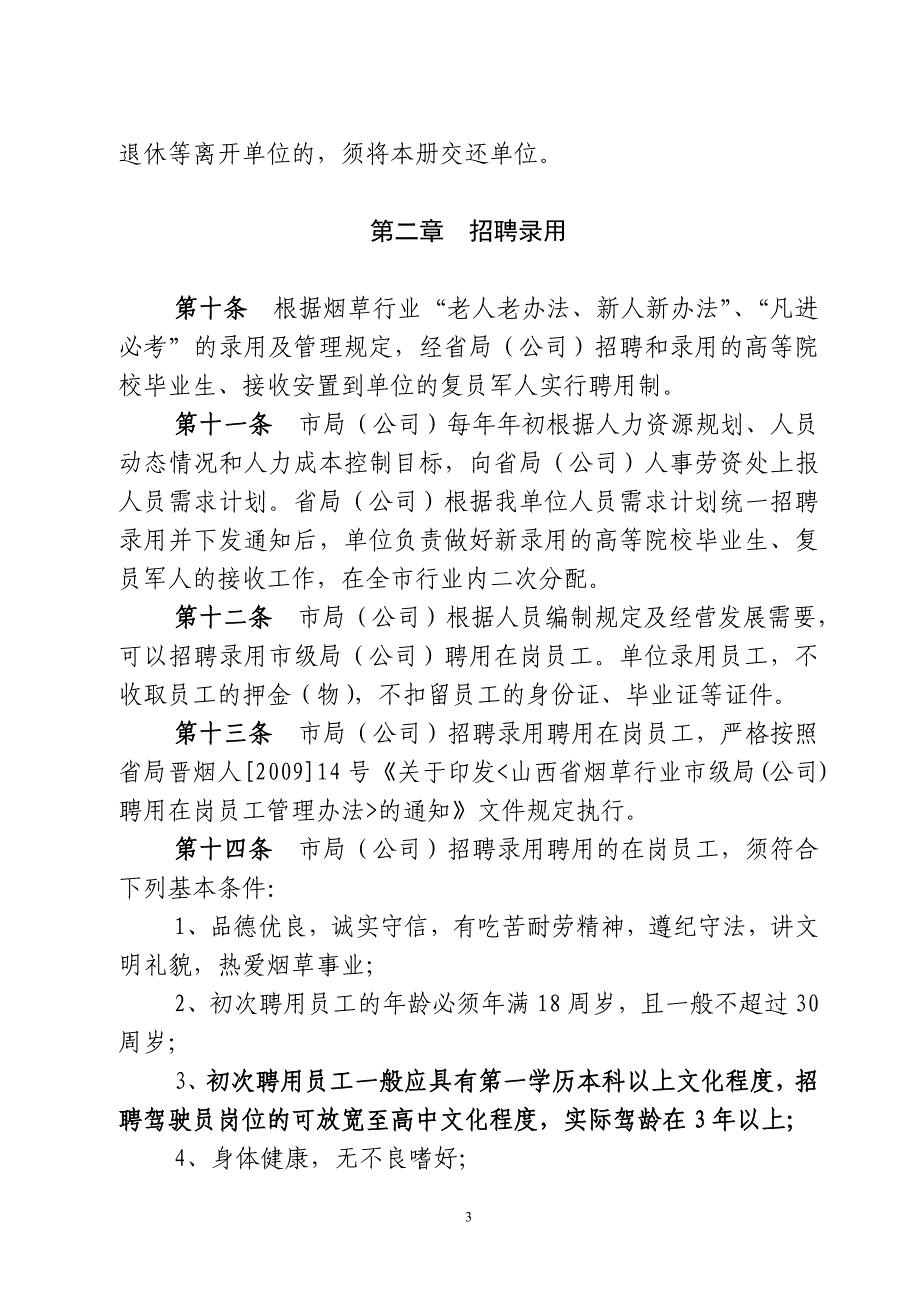 退休等离开单位的，须将本册交还单位。
第二章　招聘录用
第十条　根据烟草行业“老人老办法、新人新办法”、“凡进
必考”的录用及管理规定，经省局（公司）招聘和录用的高等院
校毕业生、接收安置到单位的复员军人实行聘用制。
第十一条　市局（公司）每年年初根据人力资源规划、人员
动态情况和人力成本控制目标，向省局（公司）人事劳资处上报
人员需求计划。省局（公司）根据我单位人员需求计划统一招聘
录用并下发通知后，单位负责做好新录用的高等院校毕业生、复
员军人的接收工作，在全市行业内二次分配。
第十二条　市局（公司）根据人员编制规定及经营发展需要，
可以招聘录用市级局（公司）聘用在岗员工。单位录用员工，不
收取员工的押金（物），不扣留员工的身份证、毕业证等证件。
第十三条　市局（公司）招聘录用聘用在岗员工，严格按照
省局晋烟人[2009]14 号《关于印发<山西省烟草行业市级局(公司)
聘用在岗员工管理办法>的通知》文件规定执行。
第十四条　市局（公司）招聘录用聘用的在岗员工，须符合
下列基本条件：
1、品德优良，诚实守信，有吃苦耐劳精神，遵纪守法，讲文
明礼貌，热爱烟草事业；
2、初次聘用员工的年龄必须年满 18 周岁，且一般不超过 30
周岁；
3、初次聘用员工一般应具有第一学历本科以上文化程度，招
聘驾驶员岗位的可放宽至高中文化程度，实际驾龄在 3 年以上；
4、身体健康，无不良嗜好；
3